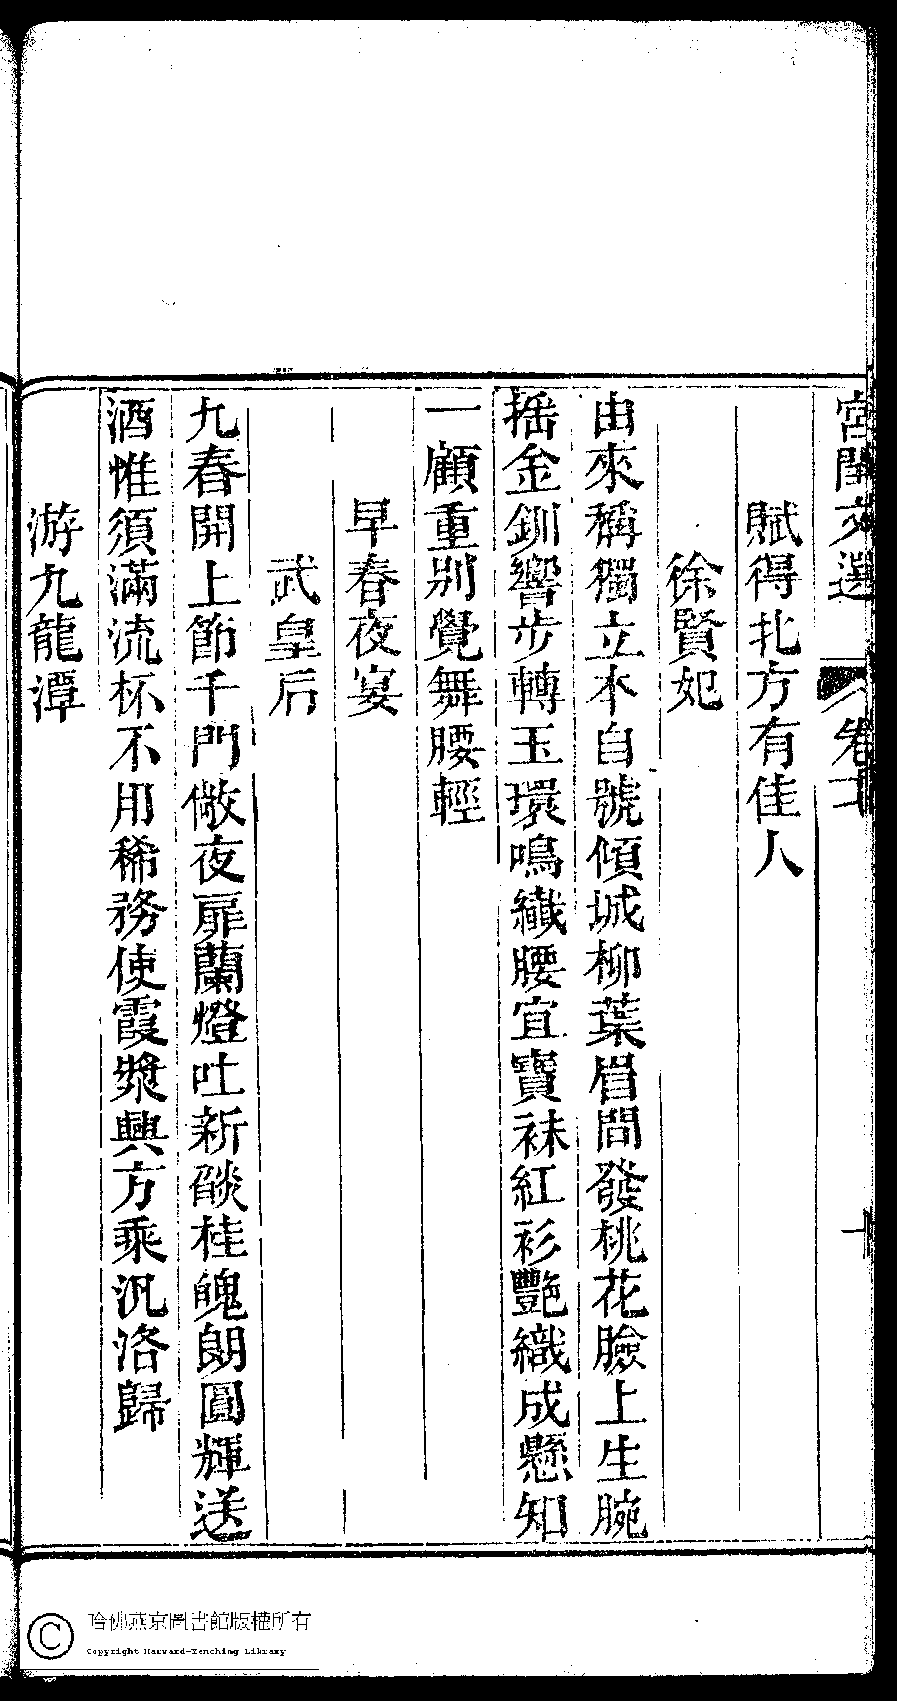 宮閨文選 卷十 十
賦得北方有佳人
徐賢妃
由來稱獨立本自號傾城柳葉眉間發桃花臉上生腕
揺金釧響步轉玉環鳴纎腰宜寶袜紅衫艷織成懸知
一顧重别覺舞腰輕
早春夜宴
武皇后
九春開上節千門敞夜扉蘭燈吐新燄桂魄朗圓輝送
酒惟須滿流杯不用稀務使霞漿興方乘汎洛歸
游九龍潭
哈佛燕京圖書館版權所有
Copyright Harvard-Yenching Library